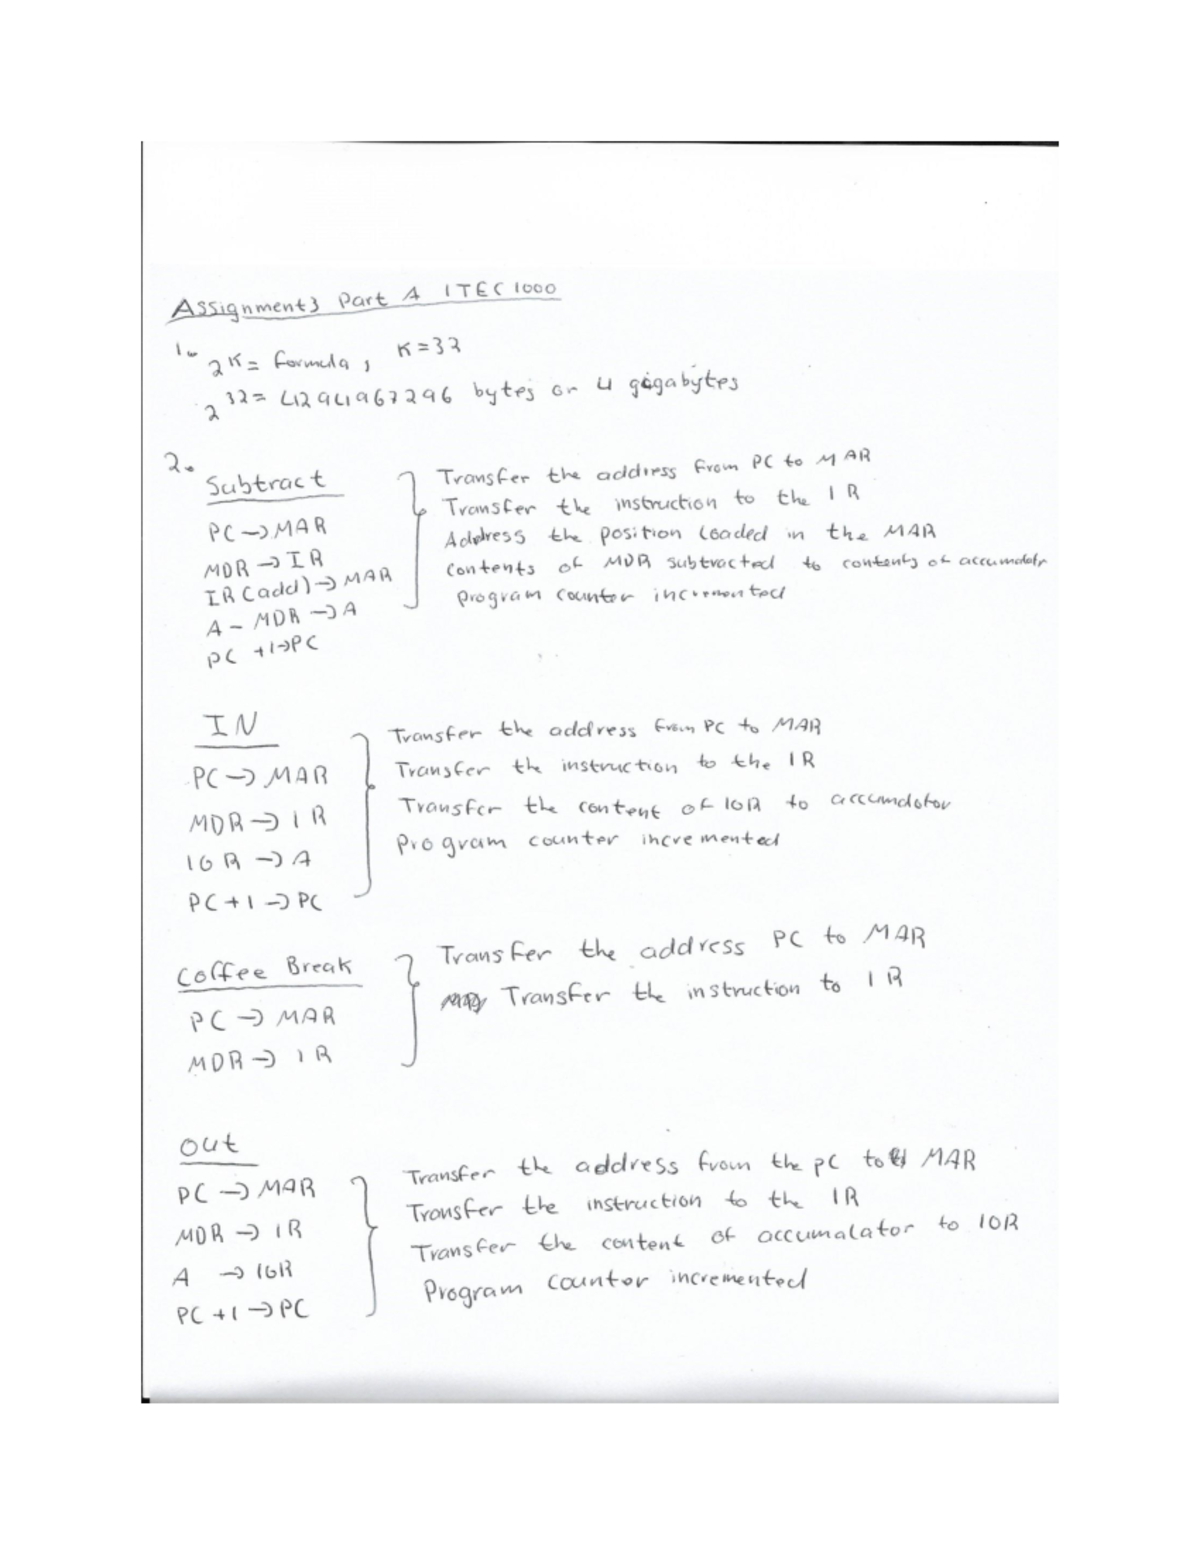 Assignment3 Part A ITEC1000
1. 2^K = formula, K=32
2^32 = 4294967296 bytes or 4 gigabytes
2.
Subtract
PC → MAR
MDR → IR
IR(add) → MAR
A - MDR → A
PC +1→PC
Transfer the address from PC to MAR
Transfer the instruction to the IR
Address the position loaded in the MAR
contents of MDR subtracted to contents of accumulator
program counter incremented
IN
PC → MAR
MDR → IR
IOR → A
PC+1 → PC
Transfer the address from PC to MAR
Transfer the instruction to the IR
Transfer the content of IOR to accumulator
Program counter incremented
Coffee Break
PC → MAR
MDR → IR
Transfer the address PC to MAR
Transfer the instruction to IR
Out
PC → MAR
MDR → IR
A → IOR
PC +1 → PC
Transfer the address from the PC to MAR
Transfer the instruction to the IR
Transfer the content of accumalator to IOR
Program counter incremented